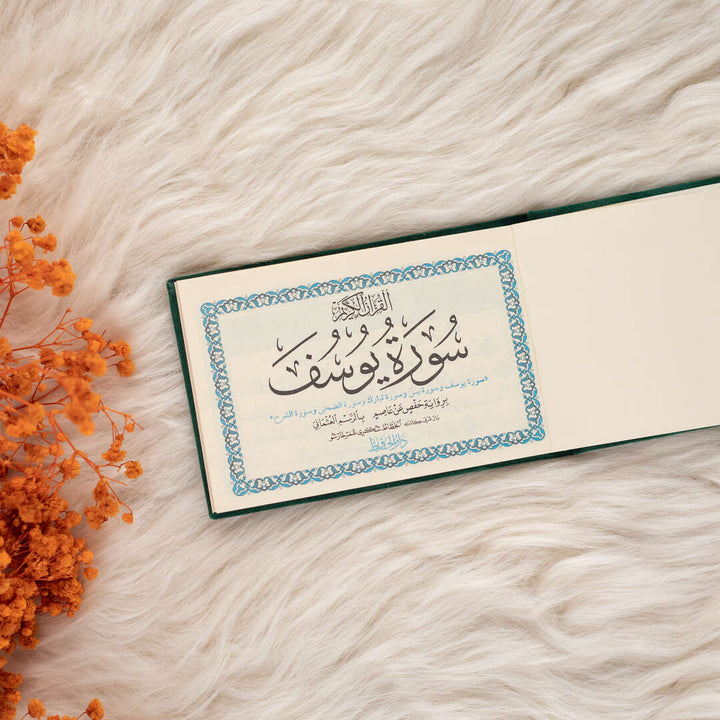 القرآن الكريم
سُورَةُ يُوسُفَ
«سورة يوسف وسورة يس وسورة تبارك وسورة الضحى وسورة الشرح»
بِرِوَايَةِ حَفْصٍ عَنْ عَاصِمٍ بِالرَّسْمِ العُثْمَانِي